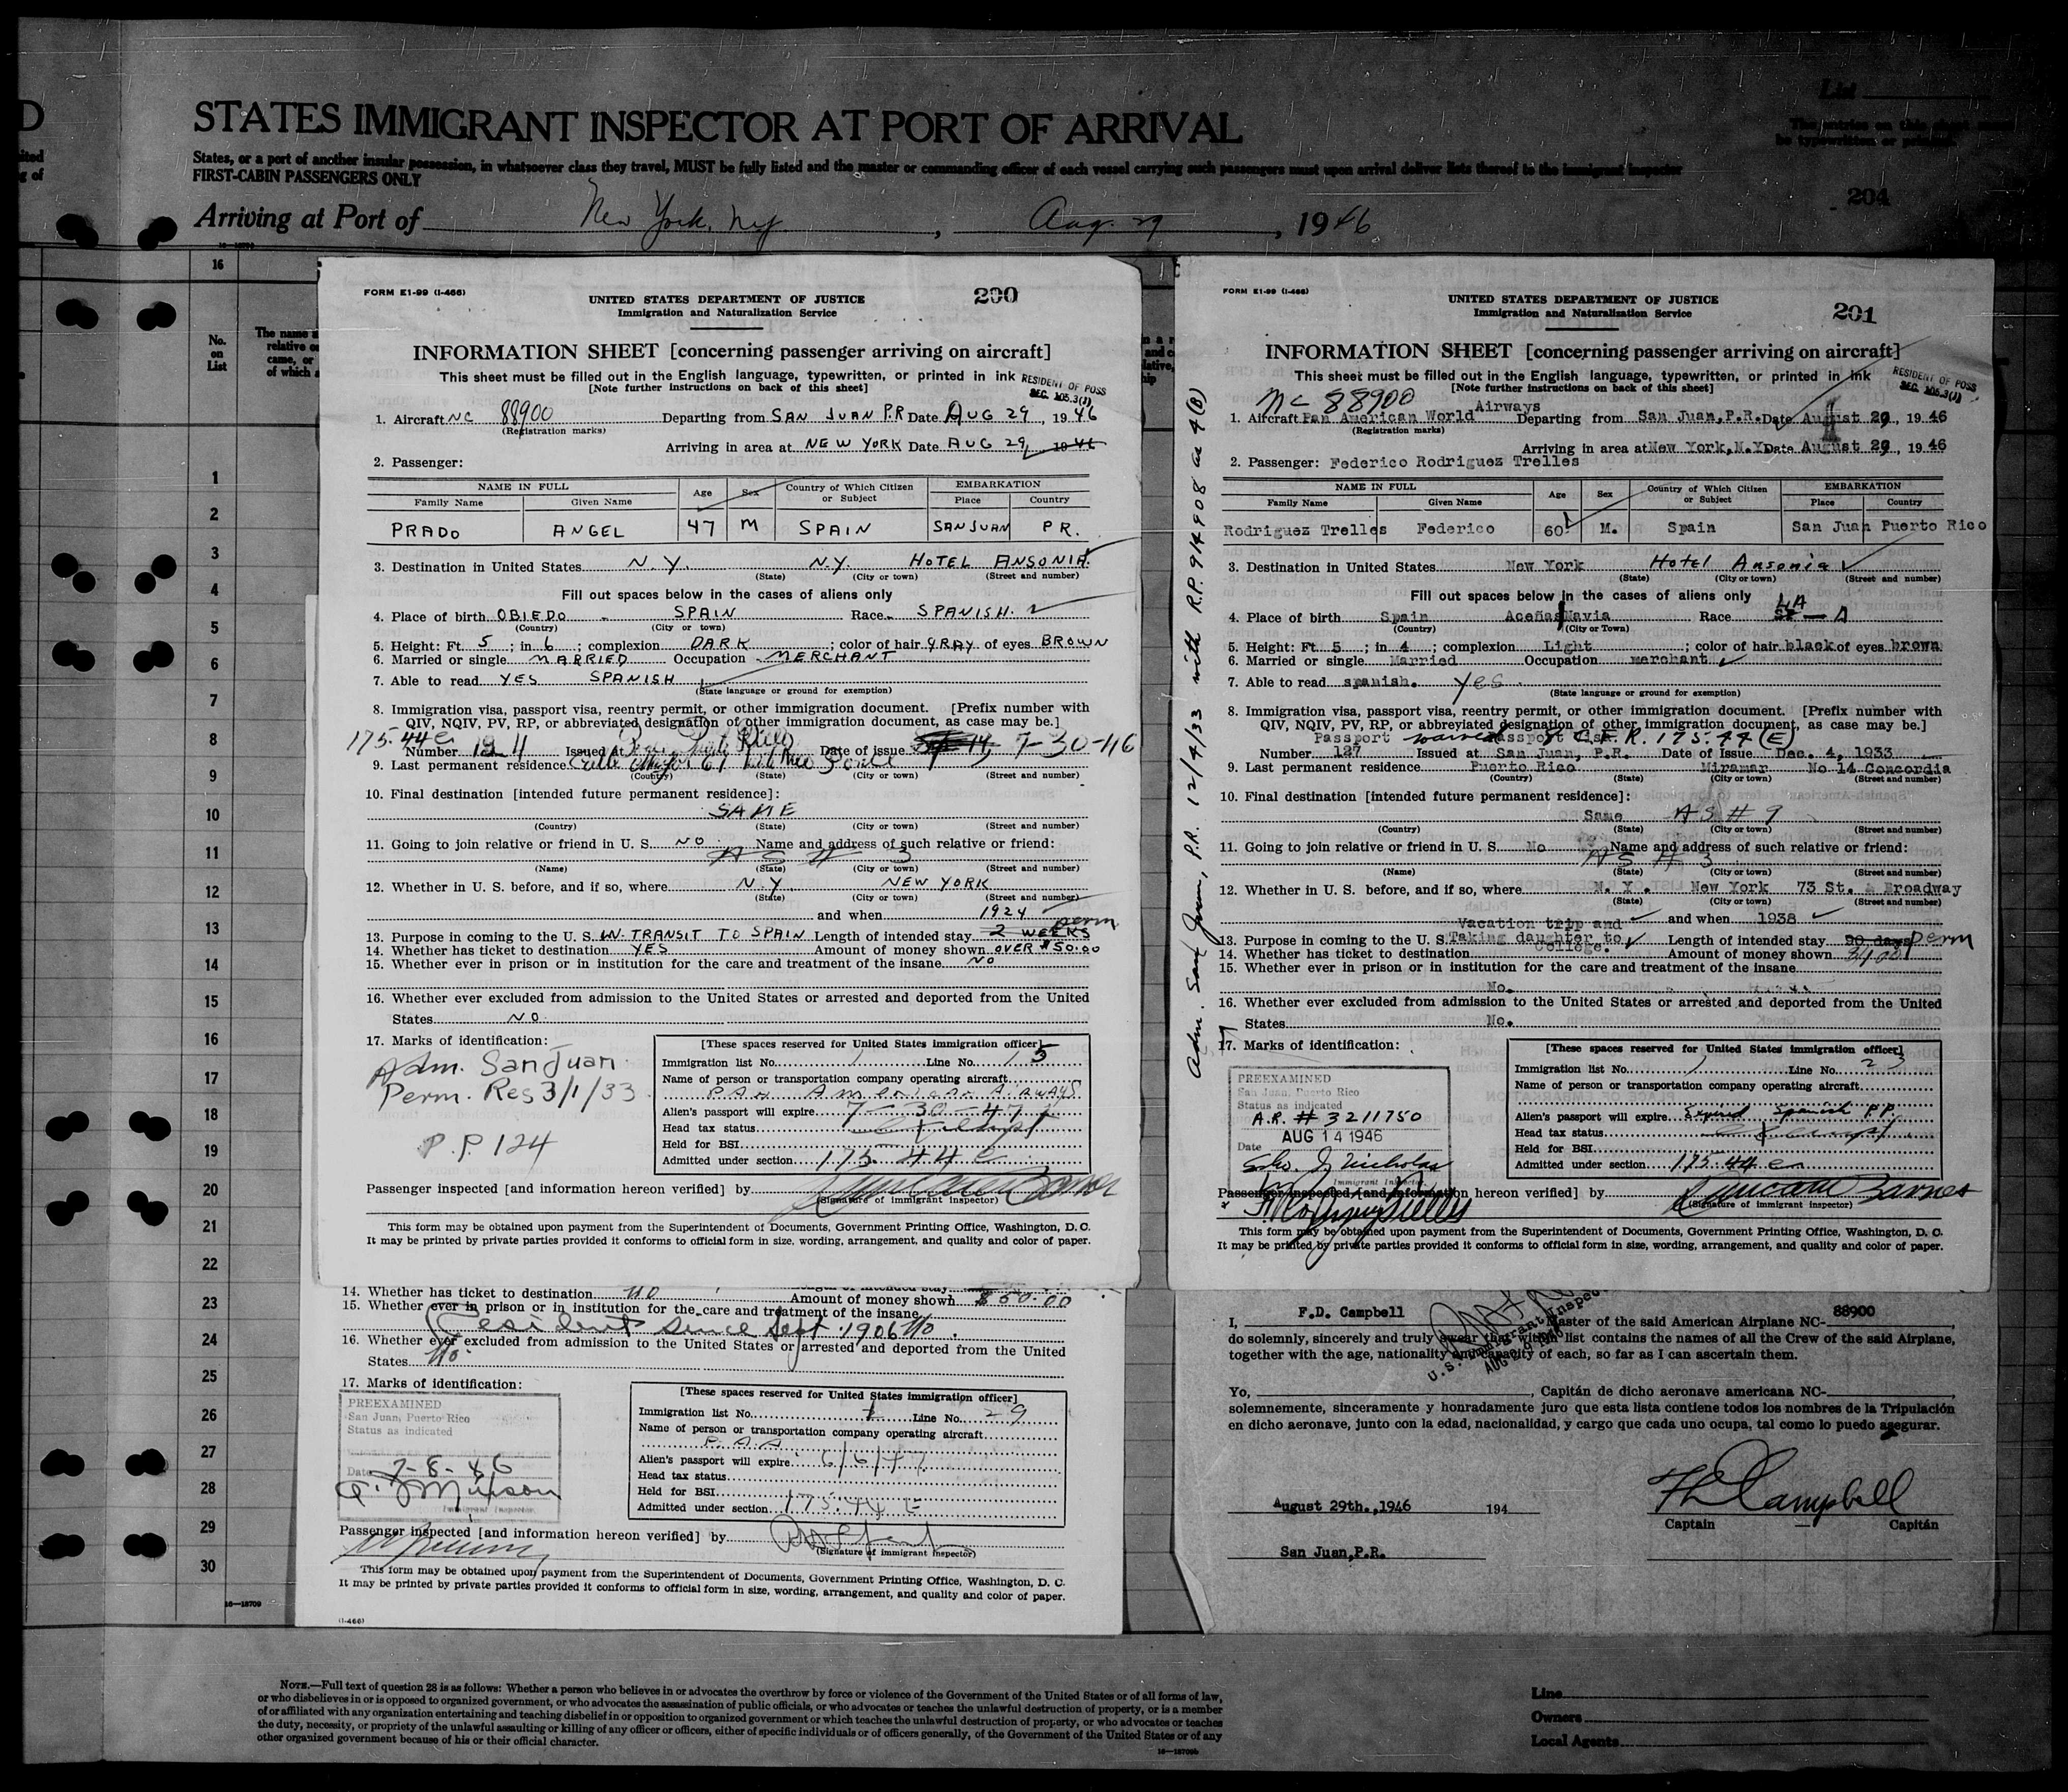 D
STATES IMMIGRANT INSPECTOR AT PORT OF ARRIVAL
List
States, or a port of another insular possession, in whatsoever class they travel, MUST be fully listed and the master or commanding officer of each vessel carrying such passengers must upon arrival deliver lists thereof to the immigrant inspector
FIRST-CABIN PASSENGERS ONLY
204
Arriving at Port of New York, NY, Aug. 29, 1946
No. on List
16
1
2
3
4
5
6
7
8
9
10
11
12
13
14
15
16
17
18
19
20
21
22
23
24
25
26
27
28
29
30
FORM E1-99 (I-466)
UNITED STATES DEPARTMENT OF JUSTICE
200
Immigration and Naturalization Service
INFORMATION SHEET [concerning passenger arriving on aircraft]
This sheet must be filled out in the English language, typewritten, or printed in ink
[Note further instructions on back of this sheet]
RESIDENT OF POSS
SEC. 105.3(J)
1. Aircraft NC 88900 Departing from SAN JUAN P.R Date AUG 29, 1946
(Registration marks)
Arriving in area at NEW YORK Date AUG 29, 1946
2. Passenger:
NAME IN FULL Age Sex Country of Which Citizen or Subject EMBARKATION
Family Name Given Name Place Country
PRADO ANGEL 47 M SPAIN SAN JUAN P.R.
3. Destination in United States N.Y. N.Y. HOTEL ANSONIA
(State) (City or town) (Street and number)
Fill out spaces below in the cases of aliens only
4. Place of birth OBIEDO - SPAIN Race SPANISH.
(Country) (City or town)
5. Height: Ft. 5; in 6; complexion DARK; color of hair GRAY of eyes BROWN
6. Married or single MARRIED Occupation MERCHANT
7. Able to read YES SPANISH
(State language or ground for exemption)
8. Immigration visa, passport visa, reentry permit, or other immigration document. [Prefix number with
QIV, NQIV, PV, RP, or abbreviated designation of other immigration document, as case may be.]
175.44e
Number Issued at Date of issue 7-30-46
9. Last permanent residence
(Country) (State) (City or town) (Street and number)
10. Final destination [intended future permanent residence]:
SAME
(Country) (State) (City or town) (Street and number)
11. Going to join relative or friend in U. S. NO Name and address of such relative or friend:
AS # 3
(Name) (State) (City or town) (Street and number)
12. Whether in U. S. before, and if so, where N.Y. NEW YORK
(State) (City or town) (Street and number)
and when 1924
perm
13. Purpose in coming to the U. S. IN TRANSIT TO SPAIN Length of intended stay 2 WEEKS
14. Whether has ticket to destination YES Amount of money shown OVER $50.00
15. Whether ever in prison or in institution for the care and treatment of the insane NO
16. Whether ever excluded from admission to the United States or arrested and deported from the United
States NO
17. Marks of identification:
Adm. San Juan
Perm. Res 3/1/33
P.P. 124
[These spaces reserved for United States immigration officer]
Immigration list No. 1 Line No. 15
Name of person or transportation company operating aircraft
PAN AMERICAN AIRWAYS
Alien's passport will expire 7-30-47
Head tax status Exempt
Held for BSI
Admitted under section 175.44 e
Passenger inspected [and information hereon verified] by Duncan Barnes
(Signature of immigrant inspector)
This form may be obtained upon payment from the Superintendent of Documents, Government Printing Office, Washington, D. C.
It may be printed by private parties provided it conforms to official form in size, wording, arrangement, and quality and color of paper.
14. Whether has ticket to destination no Amount of money shown $50.00
15. Whether ever in prison or in institution for the care and treatment of the insane
Resident since Sept. 1906 No.
16. Whether ever excluded from admission to the United States or arrested and deported from the United
States No.
17. Marks of identification:
PREEXAMINED
San Juan, Puerto Rico
Status as indicated
Date 7-8-46
Immigrant Inspector
[These spaces reserved for United States immigration officer]
Immigration list No. 1 Line No. 29
Name of person or transportation company operating aircraft
P.A.A
Alien's passport will expire 6/6/47
Head tax status
Held for BSI
Admitted under section 175.44 E
Passenger inspected [and information hereon verified] by
(Signature of immigrant inspector)
This form may be obtained upon payment from the Superintendent of Documents, Government Printing Office, Washington, D. C.
It may be printed by private parties provided it conforms to official form in size, wording, arrangement, and quality and color of paper.
(I-466)
FORM E1-99 (I-466)
UNITED STATES DEPARTMENT OF JUSTICE
201
Immigration and Naturalization Service
INFORMATION SHEET [concerning passenger arriving on aircraft]
This sheet must be filled out in the English language, typewritten, or printed in ink
[Note further instructions on back of this sheet]
RESIDENT OF POSS
SEC. 105.3(J)
NC 88900
1. Aircraft Pan American World Airways Departing from San Juan, P.R. Date August 29, 1946
(Registration marks)
Arriving in area at New York, N.Y. Date August 29, 1946
2. Passenger: Federico Rodriguez Trelles
NAME IN FULL Age Sex Country of Which Citizen or Subject EMBARKATION
Family Name Given Name Place Country
Rodriguez Trelles Federico 60 M. Spain San Juan Puerto Rico
3. Destination in United States New York Hotel Ansonia
(State) (City or town) (Street and number)
Fill out spaces below in the cases of aliens only
4. Place of birth Spain Aceñas Navia Race
(Country) (City or Town)
5. Height: Ft. 5; in 4; complexion Light; color of hair black of eyes brown
6. Married or single Married Occupation merchant
7. Able to read spanish. yes
(State language or ground for exemption)
8. Immigration visa, passport visa, reentry permit, or other immigration document. [Prefix number with
QIV, NQIV, PV, RP, or abbreviated designation of other immigration document, as case may be.]
Passport waived 8 C.F.R. 175.44 (E)
Number 127 Issued at San Juan, P.R. Date of Issue Dec. 4, 1933
9. Last permanent residence Puerto Rico Miramar No 14 Concordia
(Country) (State) (City or town) (Street and number)
10. Final destination [intended future permanent residence]:
Same AS # 9
(Country) (State) (City or town) (Street and number)
11. Going to join relative or friend in U. S. No Name and address of such relative or friend:
AS # 3
(Name) (State) (City or town) (Street and number)
12. Whether in U. S. before, and if so, where N. Y. New York 73 St. & Broadway
(State) (City or town) (Street and number)
Vacation trip and and when 1938
13. Purpose in coming to the U. S. Taking daughter to College. Length of intended stay 90 days perm
14. Whether has ticket to destination Amount of money shown
15. Whether ever in prison or in institution for the care and treatment of the insane
No.
16. Whether ever excluded from admission to the United States or arrested and deported from the United
States No.
17. Marks of identification:
PREEXAMINED
San Juan, Puerto Rico
Status as indicated
A.R. # 3211750
Date AUG 14 1946
Immigrant Inspector
[These spaces reserved for United States immigration officer]
Immigration list No. 1 Line No. 23
Name of person or transportation company operating aircraft
Alien's passport will expire Expired Spanish P.P.
Head tax status Exempt
Held for BSI
Admitted under section 175.44 e
Passenger inspected [and information hereon verified] by Duncan Barnes
(Signature of immigrant inspector)
This form may be obtained upon payment from the Superintendent of Documents, Government Printing Office, Washington, D. C.
It may be printed by private parties provided it conforms to official form in size, wording, arrangement, and quality and color of paper.
Adm. San Juan, P.R. 12/4/33 with R.P. 914908 as 4(B)
I, F.D. Campbell Master of the said American Airplane NC- 88900,
do solemnly, sincerely and truly swear that within list contains the names of all the Crew of the said Airplane,
together with the age, nationality and capacity of each, so far as I can ascertain them.
Yo, , Capitán de dicho aeronave americana NC- ,
solemnemente, sinceramente y honradamente juro que esta lista contiene todos los nombres de la Tripulación
en dicho aeronave, junto con la edad, nacionalidad, y cargo que cada uno ocupa, tal como lo puedo asegurar.
August 29th.,1946 194
Captain — Capitán
San Juan,P.R.
NOTE.—Full text of question 28 is as follows: Whether a person who believes in or advocates the overthrow by force or violence of the Government of the United States or of all forms of law,
or who disbelieves in or is opposed to organized government, or who advocates the assassination of public officials, or who advocates or teaches the unlawful destruction of property, or is a member
of or affiliated with any organization entertaining and teaching disbelief in or opposition to organized government or which teaches the unlawful destruction of property, or who advocates or teaches
the duty, necessity, or propriety of the unlawful assaulting or killing of any officer or officers, either of specific individuals or of officers generally, of the Government of the United States or of any
other organized government because of his or their official character.
Line
Owners
Local Agents